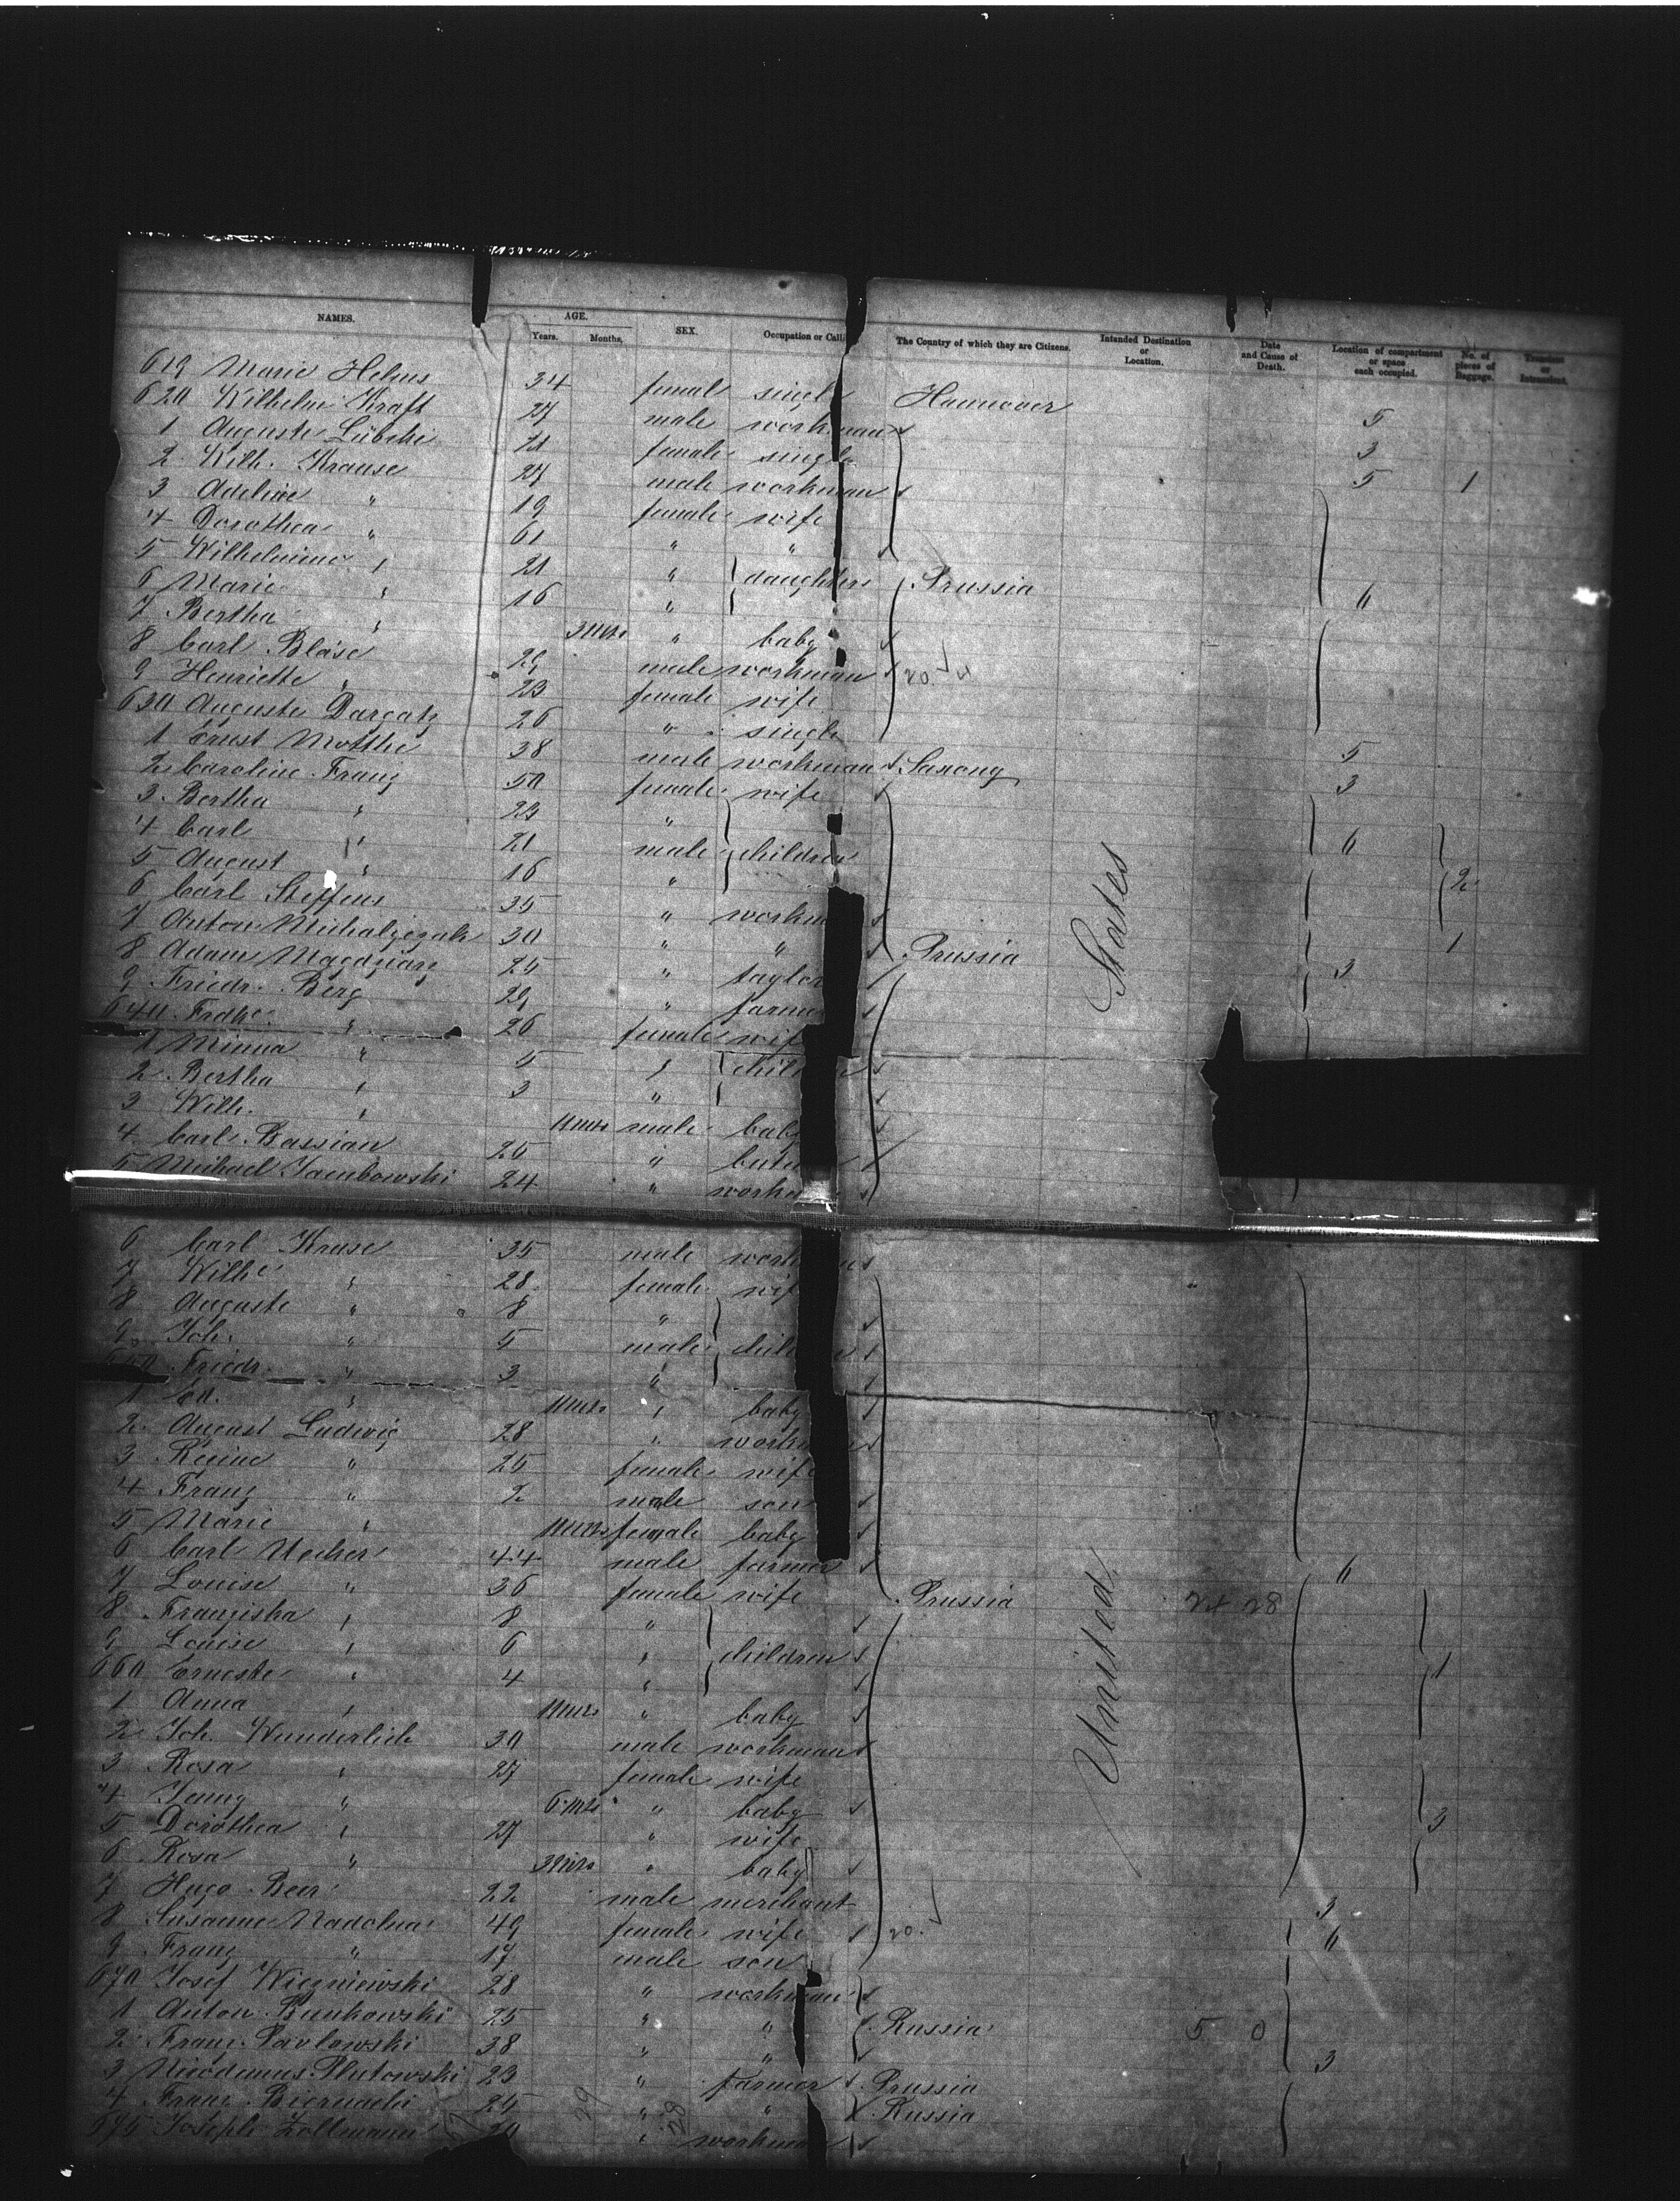 NAMES. AGE. Years. Months. SEX. Occupation or Calli The Country of which they are Citizens. Intended Destination or Location. Date and Cause of Death. Location of compartment or space each occupied. No. of pieces of Baggage. Transient or Intransient.
619 Marie Helms 34 female single Hannover 5
620 Wilhelm Kraft 27 male workman 3
1 Auguste Lübcki 21 female single 5 1
2 Wilh. Krause 27 male workman
3 Adeline " 19 female wife
4 Dorothea " 61 " "
5 Wilhelmine " 21 " daughters Prussia
6 Marie " 16 " 6
7 Bertha " 3 mts " baby
8 Carl Bläse 29 male workman 20.
9 Henriette " 23 female wife
630 Auguste Dargatz 26 " single
1 Ernst Motthe 38 male workman Saxony 5
2 Caroline Franz 50 female wife 3
3 Bertha " 23 "
4 Carl " 21 male children 6
5 August " 16 " 2
6 Carl Steffens 35 " workm
7 Anton Michalzezak 30 " " Prussia 1
8 Adam Magdzianz 25 " taylor 3
9 Friedr. Berg 29 " farme
640 Fridke " 26 female wif
1 Minna " 5 " chil
2 Bertha " 3 "
3 Wilh. " 11 mts male baby
4 Carl Bassian 26 "
5 Michael Jacubowski 24 " workm
States
6 Carl Kruse 35 male work
7 Wilhe " 28 female wif
8 Auguste " 8 "
9 Joh. " 5 male chil
650 Friedr. " 3 "
1 Ed. " 11 mts " baby
2 August Ludwig 28 " workm
3 Reine " 25 female wife
4 Franz " 2 male son
5 Marie " 11 mts female baby
6 Carl Uecker 44 male farmer 6
7 Louise " 36 female wife Prussia 24 28
8 Franziska " 8 "
9 Louise " 6 " children
660 Erneste " 4 " 1
1 Anna " 11 mts " baby
2 Joh. Wunderlich 30 male workman
3 Rosa " 27 female wife
4 Jenny " 6 mts " baby
5 Dorothea " 27 " wife 3
6 Rosa " 3 mts " baby
7 Hugo Beer 22 male merchant 3
8 Susanne Nadolna 49 female wife 20. 6
9 Franz " 17 male son
670 Josef Wiezniewski 28 " workman
1 Anton Bunkowski 25 " " Russia 5 0
2 Franz Pavlowski 38 " " 3
3 Nicodemus Plutowski 23 " farmer Prussia
4 Franz Biernacki 25 " " Russia
675 Joseph Zollmann 20 " workman
United
29 28